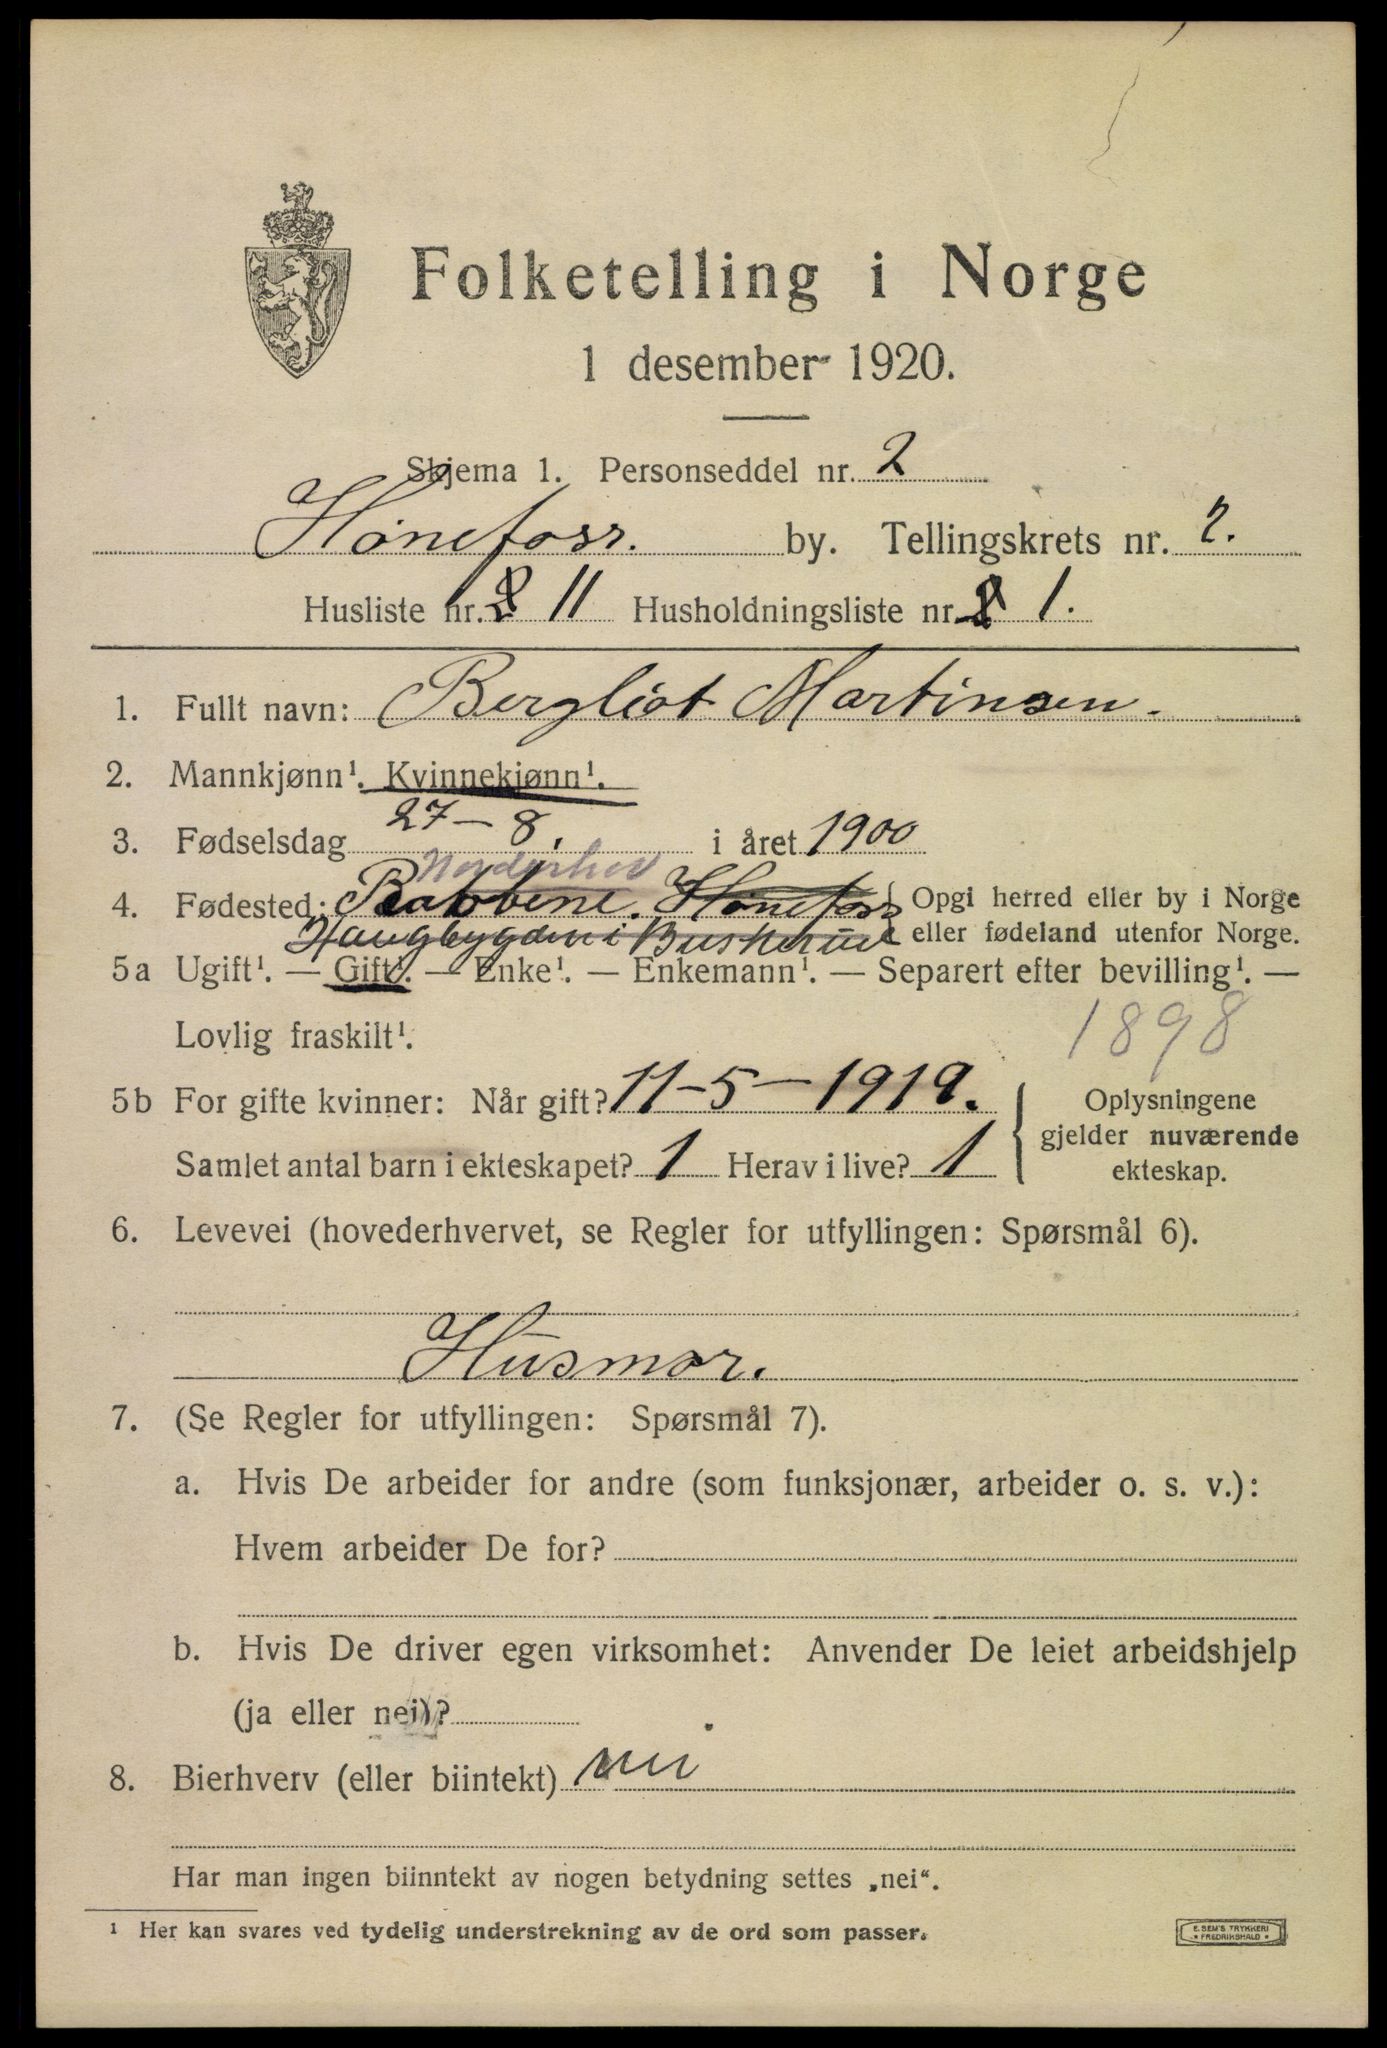 Folketelling i Norge
1 desember 1920.
Skjema 1. Personseddel nr. 2
Hønefoss. by. Tellingskrets nr. 2.
Husliste nr. 2 11 Husholdningsliste nr. 1.
1. Fullt navn: Bergliot Martinsen.
2. Mannkjønn¹. Kvinnekjønn¹.
3. Fødselsdag 27 – 8. i året 1900
Norderhov
4. Fødested: Hønefoss { Opgi herred eller by i Norge
Haugbygden i Buskerud eller fødeland utenfor Norge.
5a Ugift¹. — Gift¹. — Enke¹. — Enkemann¹. — Separert efter bevilling¹. —
Lovlig fraskilt¹.
1898
5b For gifte kvinner: Når gift? 11 – 5 – 1919. { Oplysningene
gjelder nuværende
Samlet antal barn i ekteskapet? 1 Herav i live? 1 ekteskap.
6. Levevei (hovederhvervet, se Regler for utfyllingen: Spørsmål 6).
Husmor.
7. (Se Regler for utfyllingen: Spørsmål 7).
a. Hvis De arbeider for andre (som funksjonær, arbeider o. s. v.):
Hvem arbeider De for?
b. Hvis De driver egen virksomhet: Anvender De leiet arbeidshjelp
(ja eller nei)?
8. Bierhverv (eller biintekt) nei
Har man ingen biinntekt av nogen betydning settes „nei“.
¹ Her kan svares ved tydelig understrekning av de ord som passer.
E. SEM'S TRYKKERI
* FREDRIKSHALD *